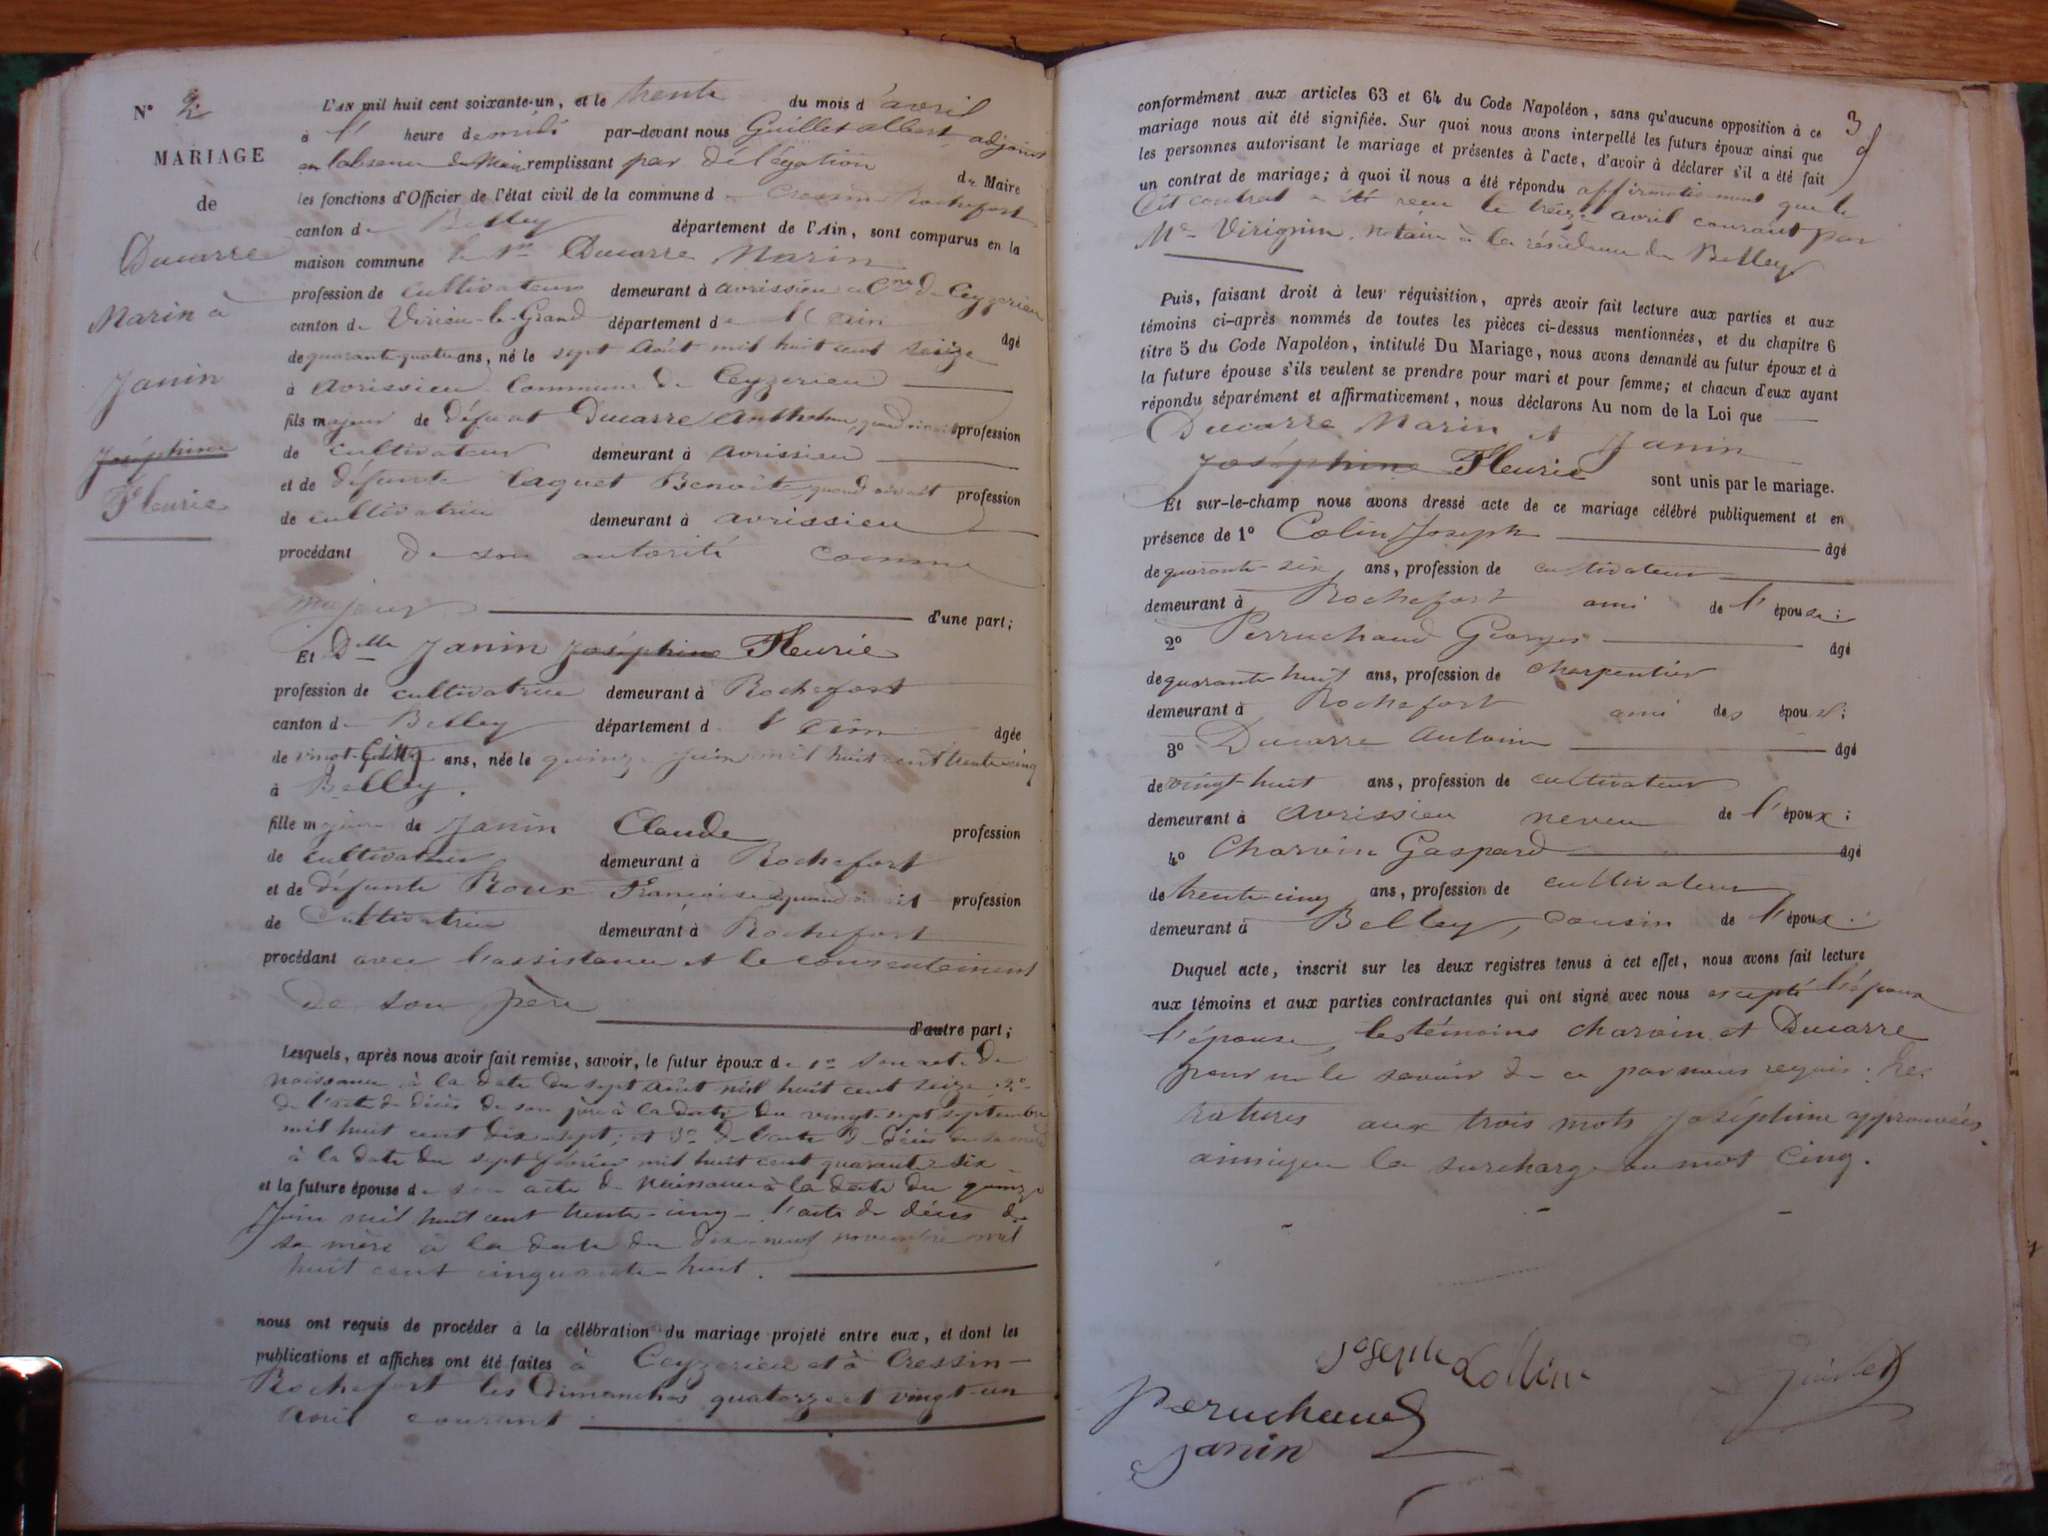 N° 2
MARIAGE
de
Ducarre
Marin à
Janin
Joséphine
Fleurie
L'AN mil huit cent soixante-un, et le trente du mois d'avril
à l' heure de midi par-devant nous Guillet albert, adjoint
en l'absence du Maire remplissant par délégation du Maire
les fonctions d'Officier de l'état civil de la commune de Cressin-Rochefort
canton de Belley département de l'Ain, sont comparus en la
maison commune le Sr Ducarre Marin
profession de cultivateur demeurant à avrissieu Cne de Ceyzerieu
canton de Virieu-le-Grand département de l'Ain âgé
de quarante quatre ans, né le sept Août mil huit cent seize
à avrissieu Commune de Ceyzerieu
fils majeur de défunt Ducarre Anthelme, quand vivait profession
de cultivateur demeurant à avrissieu
et de défunte Caquet Benoite, quand vivait profession
de cultivatrice demeurant à avrissieu
procédant de son autorité comme
majeur d'une part;
Et Delle Janin Joséphine Fleurie
profession de cultivatrice demeurant à Rochefort
canton de Belley département de l'Ain âgée
de vingt-cinq ans, née le quinze juin mil huit cent trente-cinq
à Belley.
fille majeure de Janin Claude profession
de cultivateur demeurant à Rochefort
et de défunte Roux Françoise quand vivait profession
de Cultivatrice demeurant à Rochefort
procédant avec l'assistance et le consentement
de son père d'autre part;
Lesquels, après nous avoir fait remise, savoir, le futur époux de 1° son acte de
naissance à la date du sept août mil huit cent seize; 2°
de l'acte de décès de son père à la date du vingt-sept septembre
mil huit cent dix-sept; et 3° de l'acte de décès de sa mère
à la date du sept février mil huit cent quarante-six
et la future épouse de son acte de naissance à la date du quinze
Juin mil huit cent trente-cinq l'acte de décès de
sa mère à la date du dix-neuf novembre mil
huit cent cinquante-huit.
nous ont requis de procéder à la célébration du mariage projeté entre eux, et dont les
publications et affiches ont été faites à Ceyzerieu et à Cressin-
Rochefort les Dimanches quatorze et vingt-un
Avril courant
3
conformément aux articles 63 et 64 du Code Napoléon, sans qu'aucune opposition à ce
mariage nous ait été signifiée. Sur quoi nous avons interpellé les futurs époux ainsi que
les personnes autorisant le mariage et présentes à l'acte, d'avoir à déclarer s'il a été fait
un contrat de mariage; à quoi il nous a été répondu affirmativement que le
dit contrat a été reçu le treize avril courant par
Me Virignin, notaire à la résidence de Belley
Puis, faisant droit à leur réquisition, après avoir fait lecture aux parties et aux
témoins ci-après nommés de toutes les pièces ci-dessus mentionnées, et du chapitre 6
titre 5 du Code Napoléon, intitulé Du Mariage, nous avons demandé au futur époux et à
la future épouse s'ils veulent se prendre pour mari et pour femme; et chacun d'eux ayant
répondu séparément et affirmativement, nous déclarons Au nom de la Loi que
Ducarre Marin et Janin
Joséphine Fleurie sont unis par le mariage.
Et sur-le-champ nous avons dressé acte de ce mariage célébré publiquement et en
présence de 1° Colin Joseph âgé
de quarante-six ans, profession de cultivateur
demeurant à Rochefort ami de l'épouse;
2° Perruchaud Georges âgé
de quarante huit ans, profession de charpentier
demeurant à Rochefort ami des époux;
3° Ducarre Antoine âgé
de vingt huit ans, profession de cultivateur
demeurant à avrissieu neveu de l'époux;
4° Charvin Gaspard âgé
de trente-cinq ans, profession de cultivateur
demeurant à Belley, cousin de l'époux.
Duquel acte, inscrit sur les deux registres tenus à cet effet, nous avons fait lecture
aux témoins et aux parties contractantes qui ont signé avec nous excepté l'époux
l'épouse, les témoins charvin et Ducarre
pour ne le savoir de ce par nous requis. Les
ratures aux trois mots Joséphine approuvées
ainsi que la surcharge au mot Cinq.
Joseph Collin
Guillet
Peruchaud
Janin